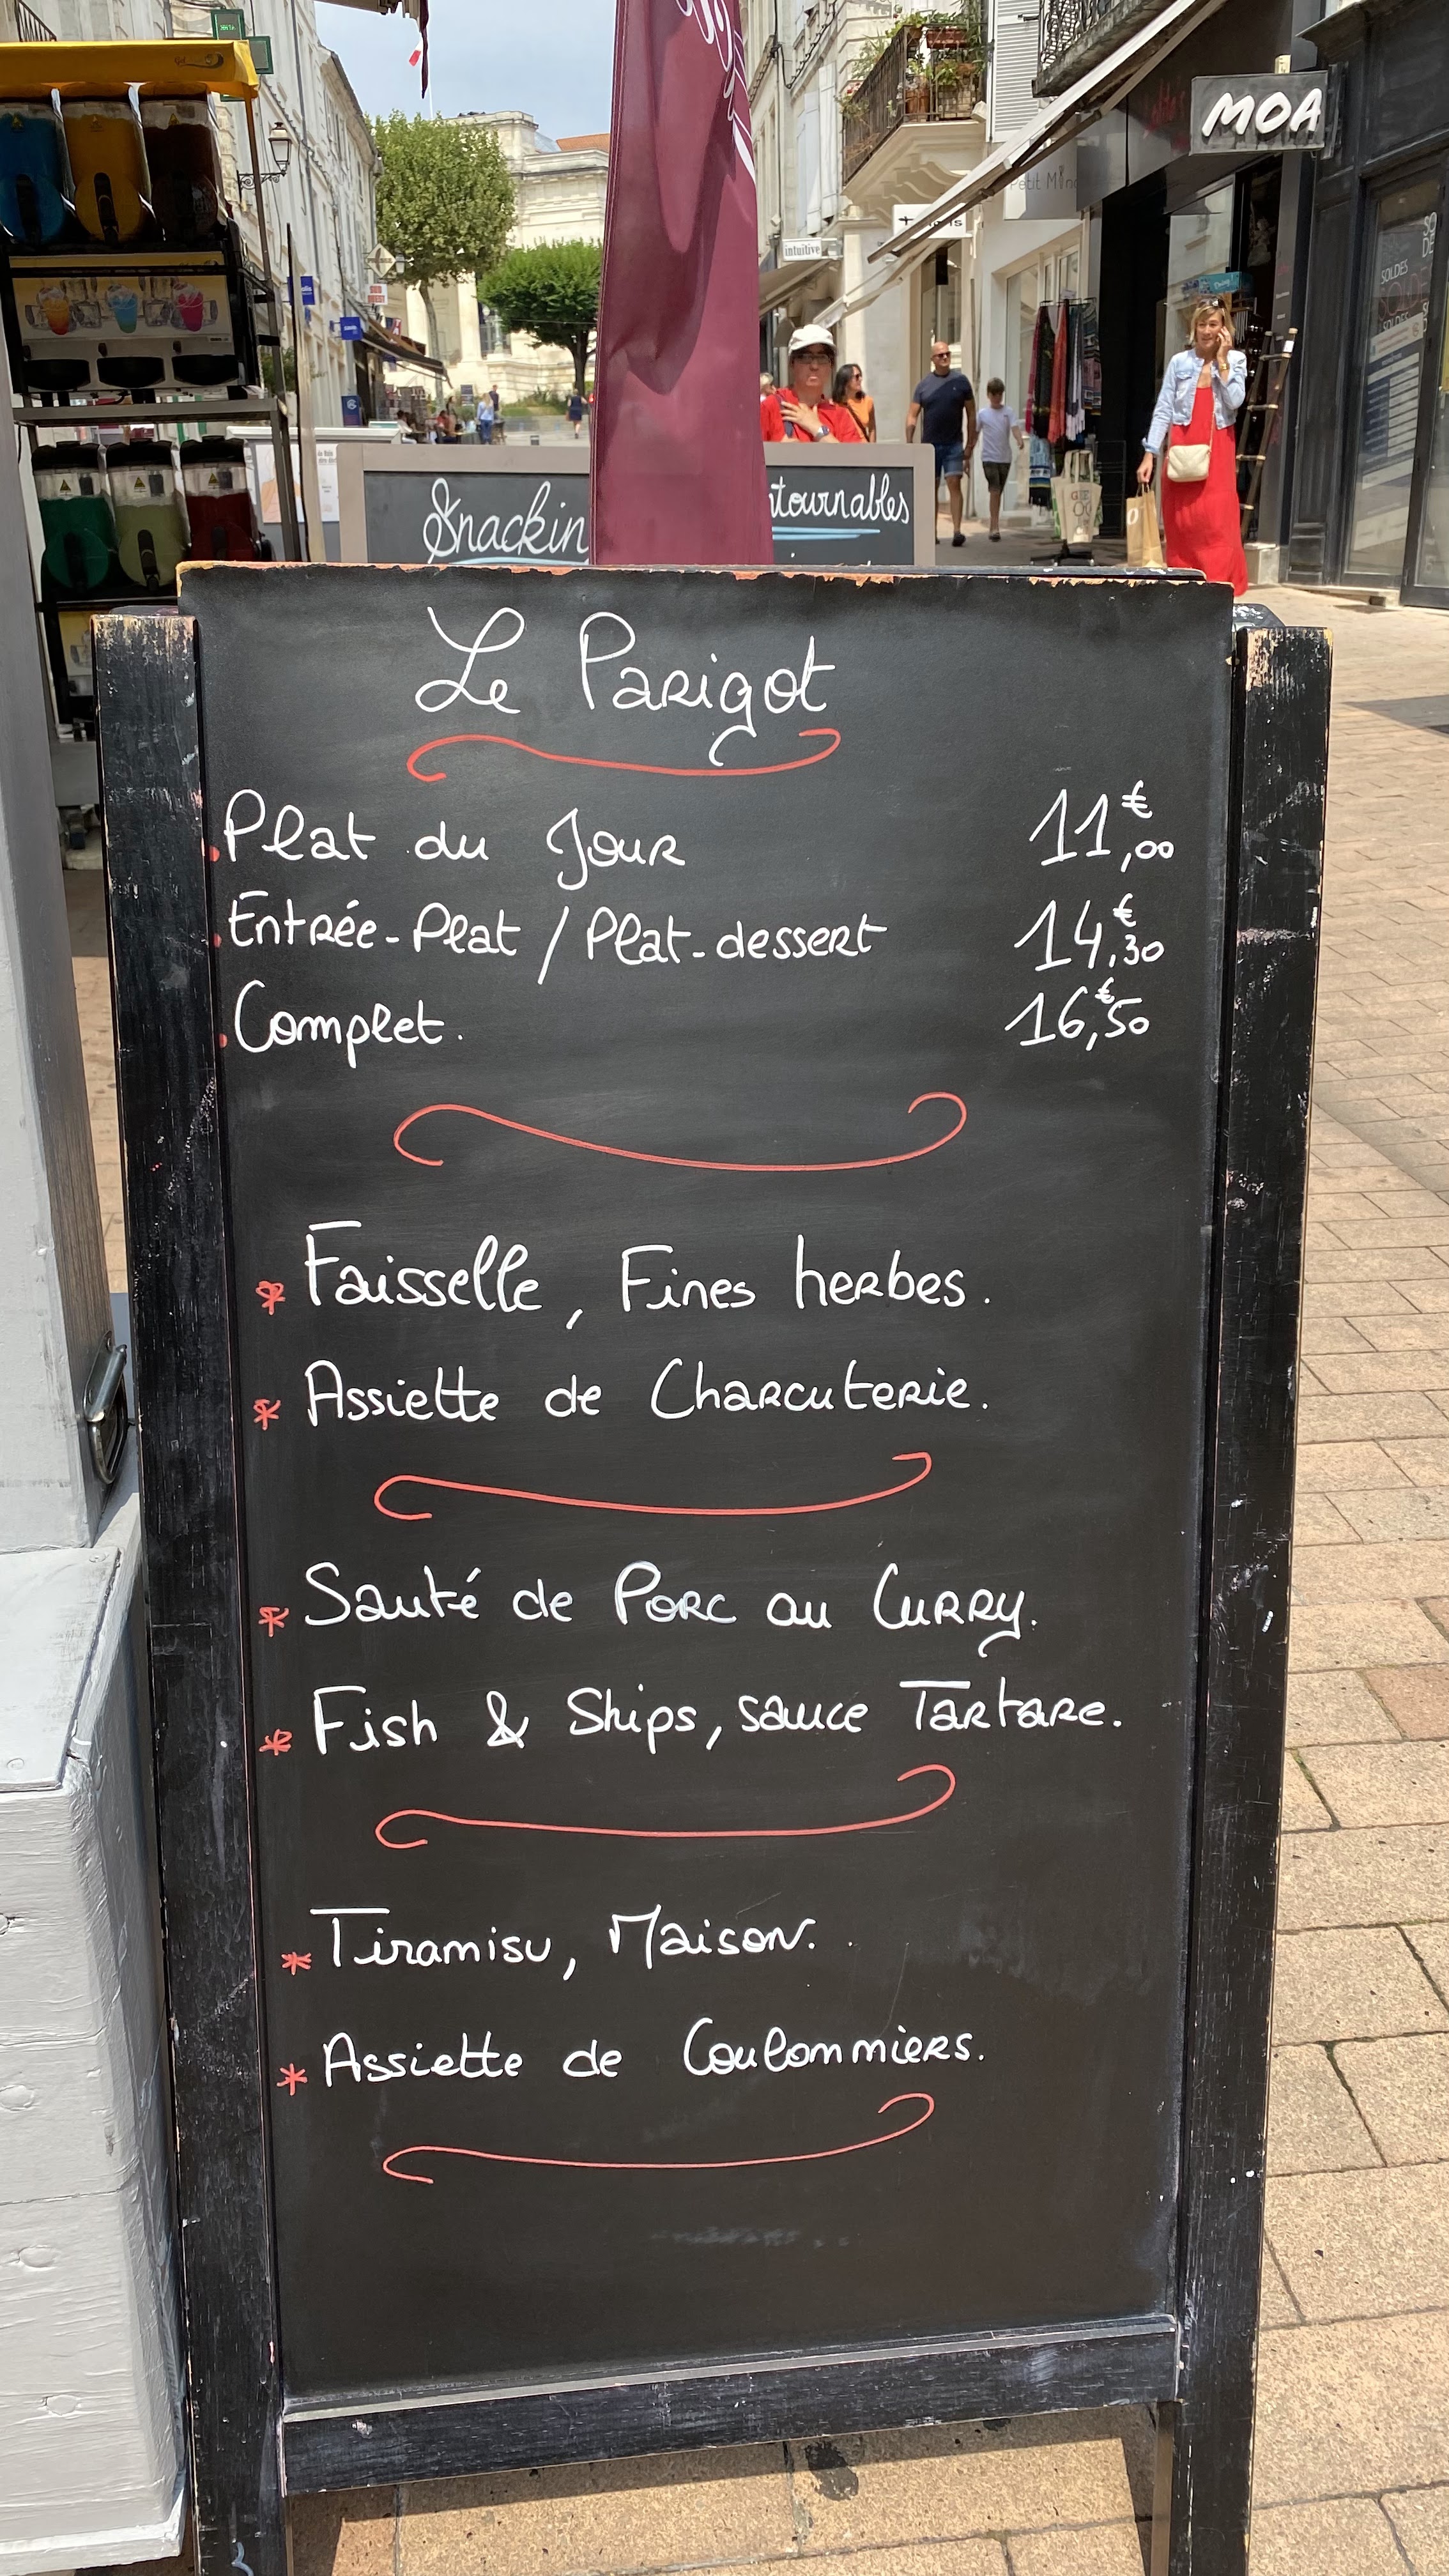 MOA
Petit Mino
intuitive
SOLDES
Snackin
ntournables
Le Parigot
Plat du Jour 11,00€
Entrée-Plat / Plat-dessert 14,30€
Complet. 16,50€
* Faisselle, Fines herbes.
* Assiette de Charcuterie.
* Sauté de Porc au Curry.
* Fish & Ships, sauce Tartare.
* Tiramisu, Maison.
* Assiette de Coulommiers.